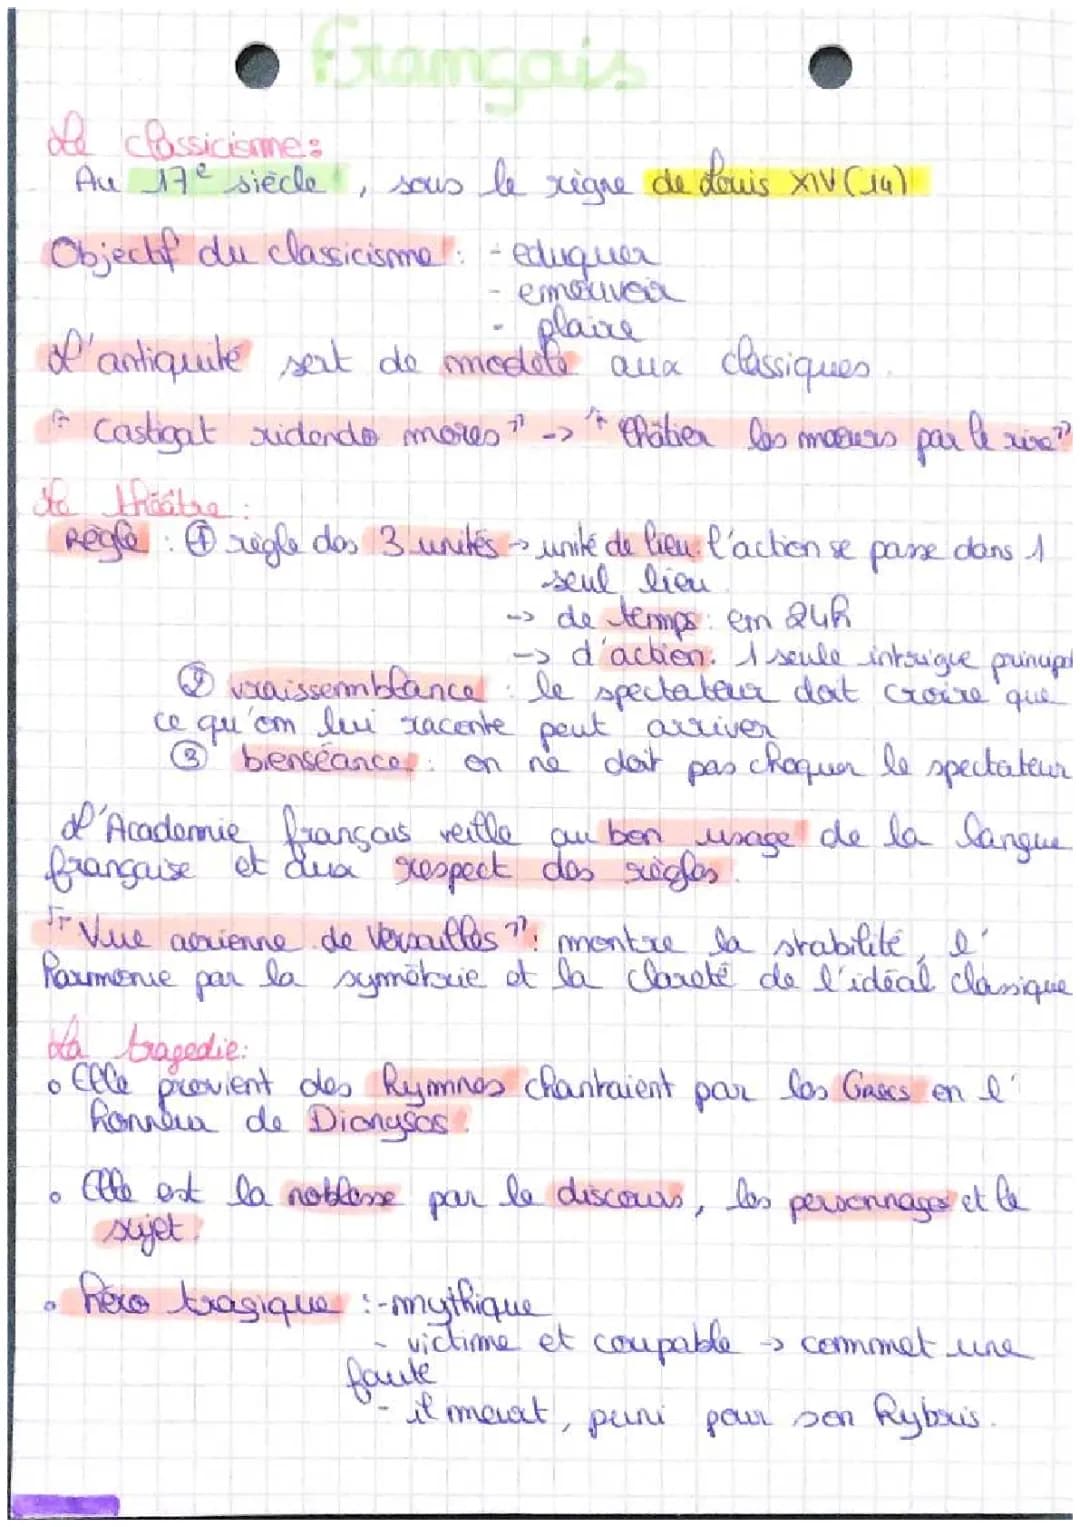 Français
Le classicisme :
Au 17e siècle, sous le règne de Louis XIV (14)
Objectif du classicisme : - eduquer
- emouvoir
- plaire
L'antiquité sert de modèle aux classiques.
"Castigat ridendo mores" -> "Châtier les mœurs par le rire"
Le théâtre :
Règle : ① règle des 3 unités -> unité de lieu : l'action se passe dans 1
seul lieu
-> de temps : en 24h
-> d'action : 1 seule intrigue principal
② vraissemblance : le spectateur doit croire que
ce qu'on lui raconte peut arriver
③ bienséance : on ne doit pas choquer le spectateur
L'Academie français veille au bon usage de la langue
française et dux respect des règles.
"Vue aérienne de Versailles" : montre la stabilité, l'
harmonie par la symétrie et la clareté de l'idéal classique
La tragedie :
• Elle provient des hymnes chantaient par les Grecs en l'
honneur de Dionysos.
• Elle est la noblesse par le discours, les personnages et le
sujet.
• héro tragique : - mythique
- victime et coupable -> commet une
faute
- il meurt, puni pour son hybris.